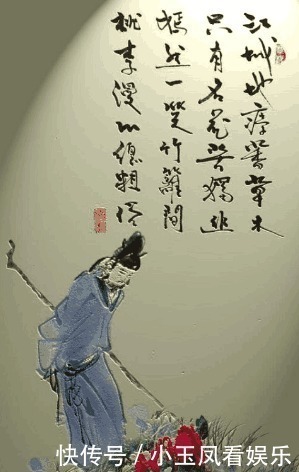 江城地瘴蕃草木
只有名花苦獨幽
嫣然一笑竹籬間
桃李漫山總粗俗
快传号 / 小玉凤看娱乐